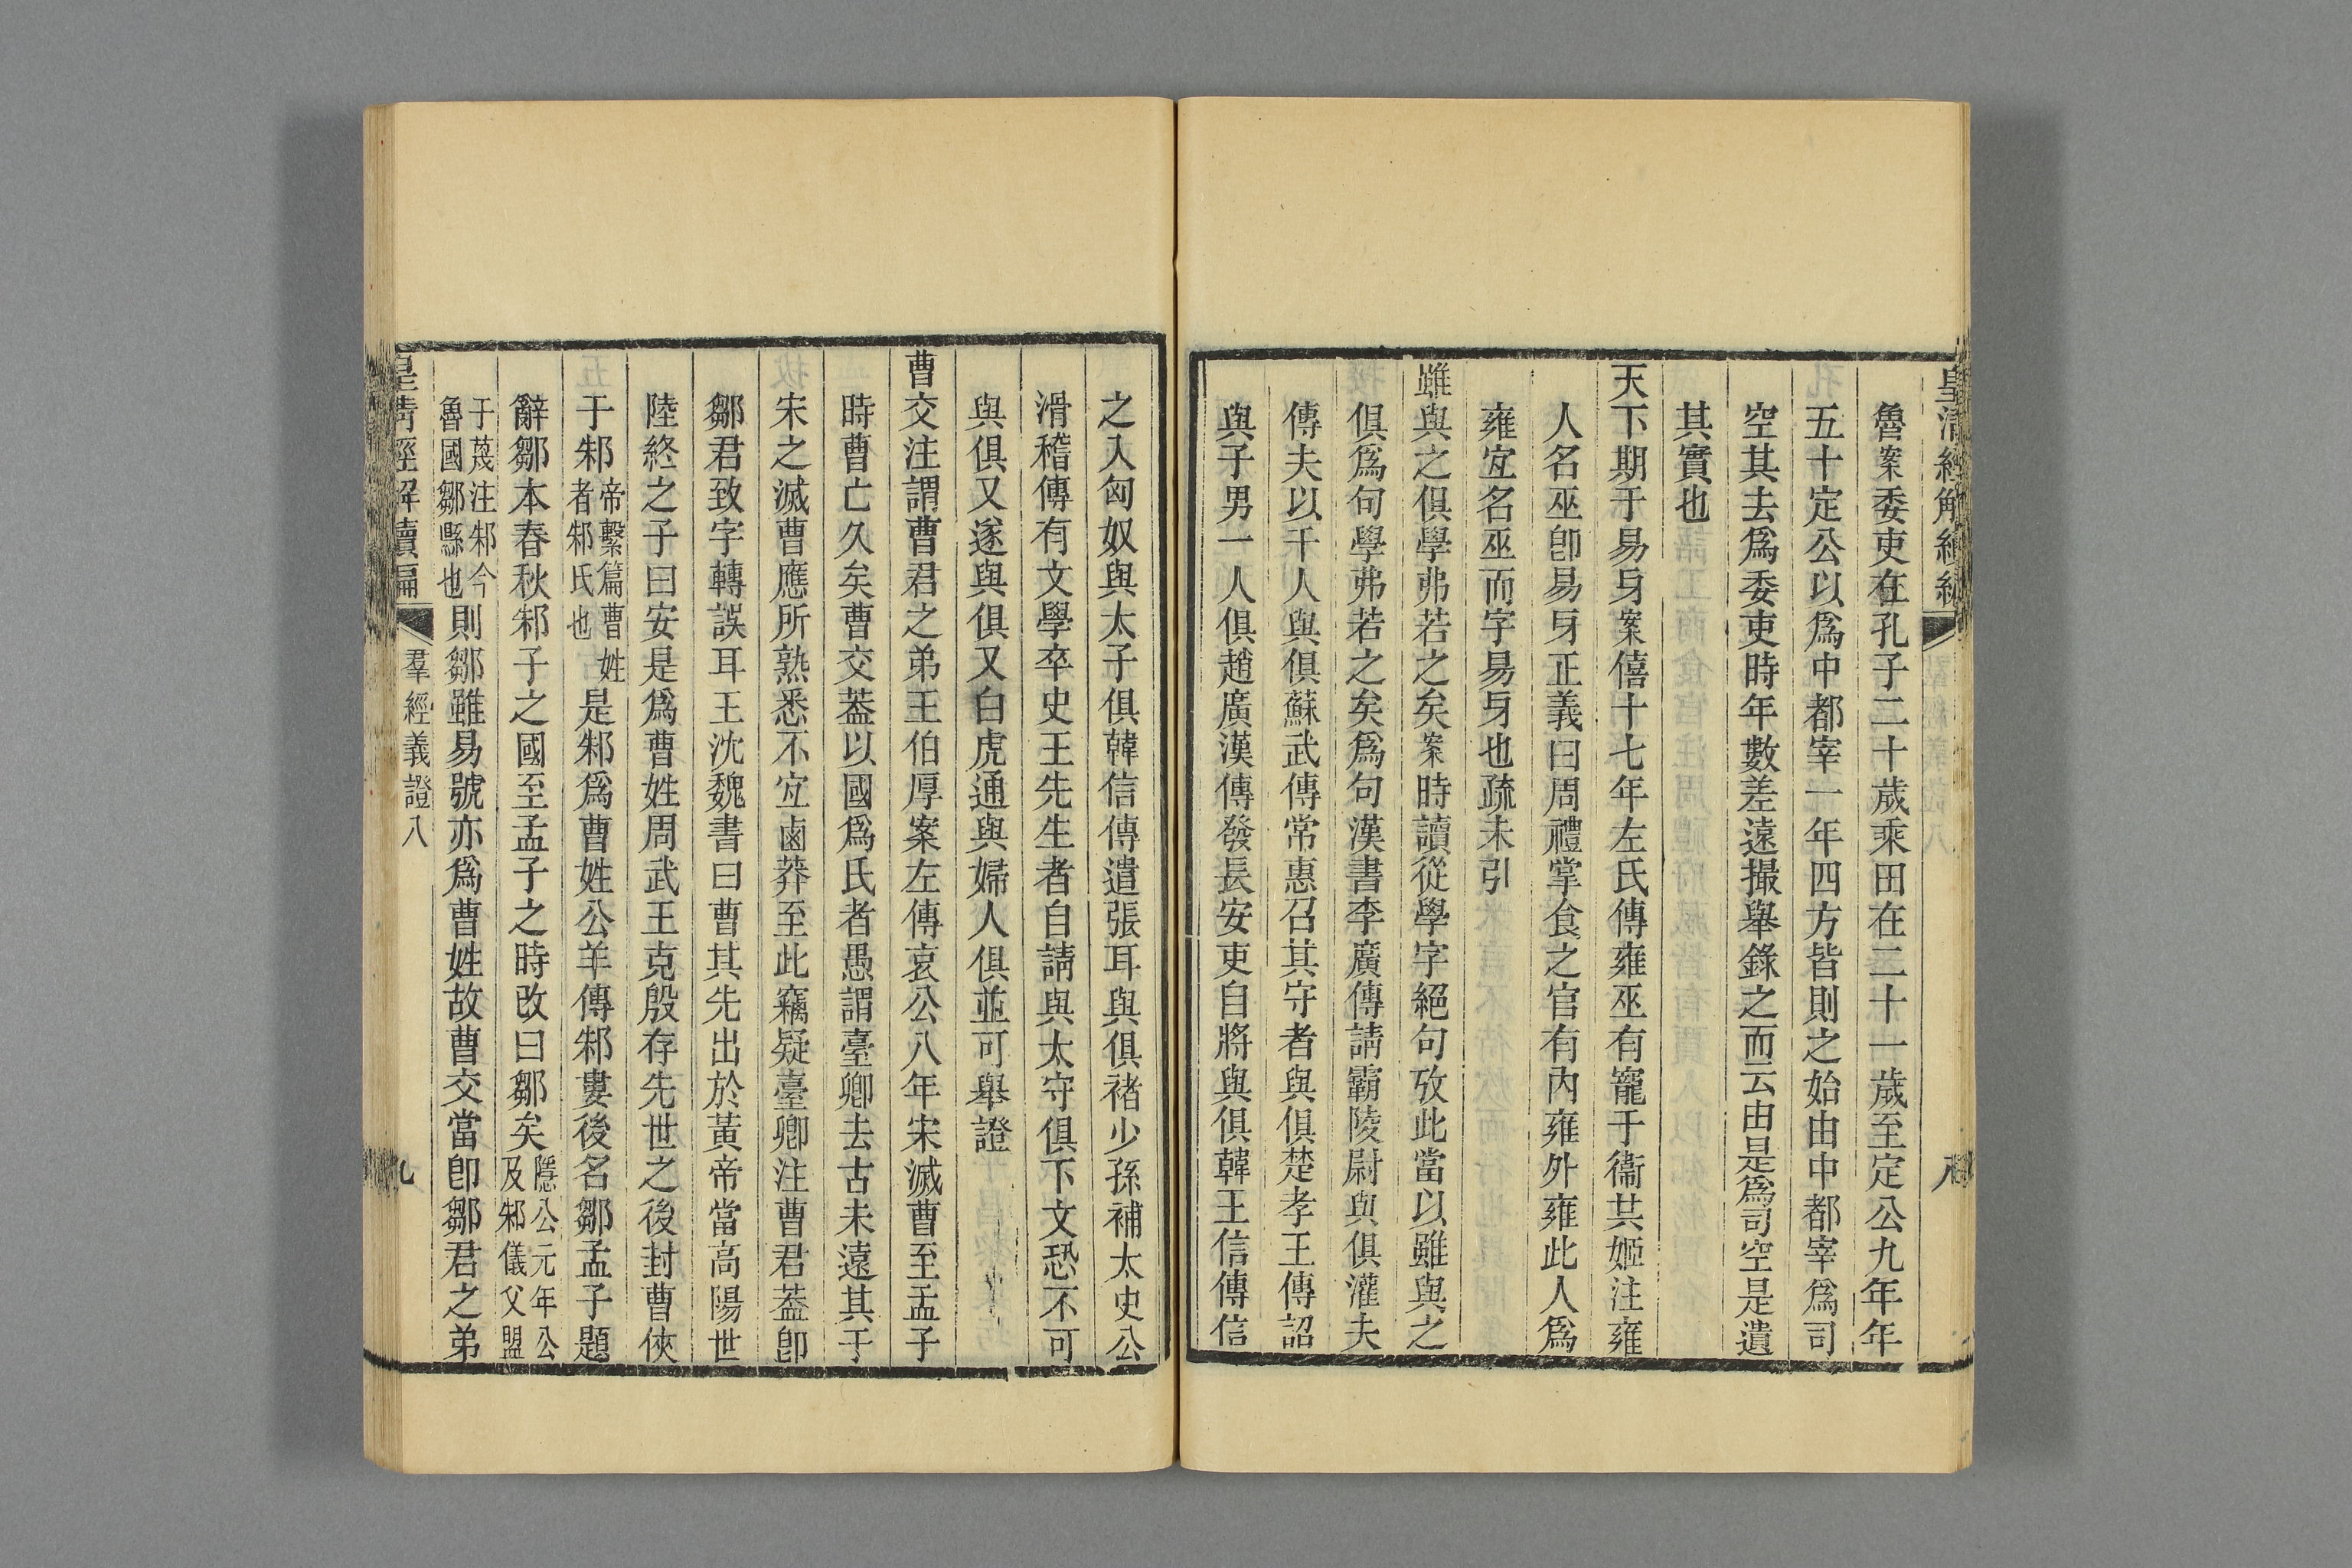 皇清經解續編
八
魯案委吏在孔子二十歲乘田在二十一歲至定公九年年
五十定公以爲中都宰一年四方皆則之始由中都宰爲司
空其去爲委吏時年數差遠撮舉錄之而云由是爲司空是遺
其實也
天下期于易牙案僖十七年左氏傳雍巫有寵于衞共姬注雍
人名巫卽易牙正義曰周禮掌食之官有內雍外雍此人爲
雍宐名巫而字易牙也疏未引
雖與之俱學弗若之矣案時讀從學字絕句攷此當以雖與之
俱爲句學弗若之矣爲句漢書李廣傳請霸陵尉與俱灌夫
傳夫以千人與俱蘇武傳常惠召其守者與俱楚孝王傳詔
與子男一人俱趙廣漢傳發長安吏自將與俱韓王信傳信
之入匈奴與太子俱韓信傳遣張耳與俱褚少孫補太史公
滑稽傳有文學卒史王先生者自請與太守俱下文恐不可
與俱又遂與俱又白虎通與婦人俱並可舉證
曹交注謂曹君之弟王伯厚案左傳哀公八年宋滅曹至孟子
時曹亡久矣曹交葢以國爲氏者愚謂臺卿去古未遠其于
宋之滅曹應所熟悉不宐鹵莽至此竊疑臺卿注曹君葢卽
鄒君致字轉誤耳王沈魏書曰曹其先出於黃帝當高陽世
陸終之子曰安是爲曹姓周武王克殷存先世之後封曹俠
于邾帝繫篇曹姓者邾氏也是邾爲曹姓公羊傳邾婁後名鄒孟子題
辭鄒本春秋邾子之國至孟子之時改曰鄒矣隱公元年公及邾儀父盟
于蔑注邾今魯國鄒縣也則鄒雖易號亦爲曹姓故曹交當卽鄒君之弟
皇清經解續編
羣經義證八
九